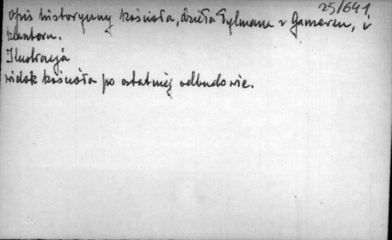 25/641
opis historyczny kościoła, dzieła Tylmana z Gameren, i
klasztoru.
Ilustracja
widok kościoła po ostatniej odbudowie.